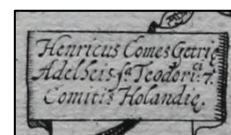 Henricus Comes Getrię
Adelheis fª Teodori. ci. 7.
Comitis Holandię.